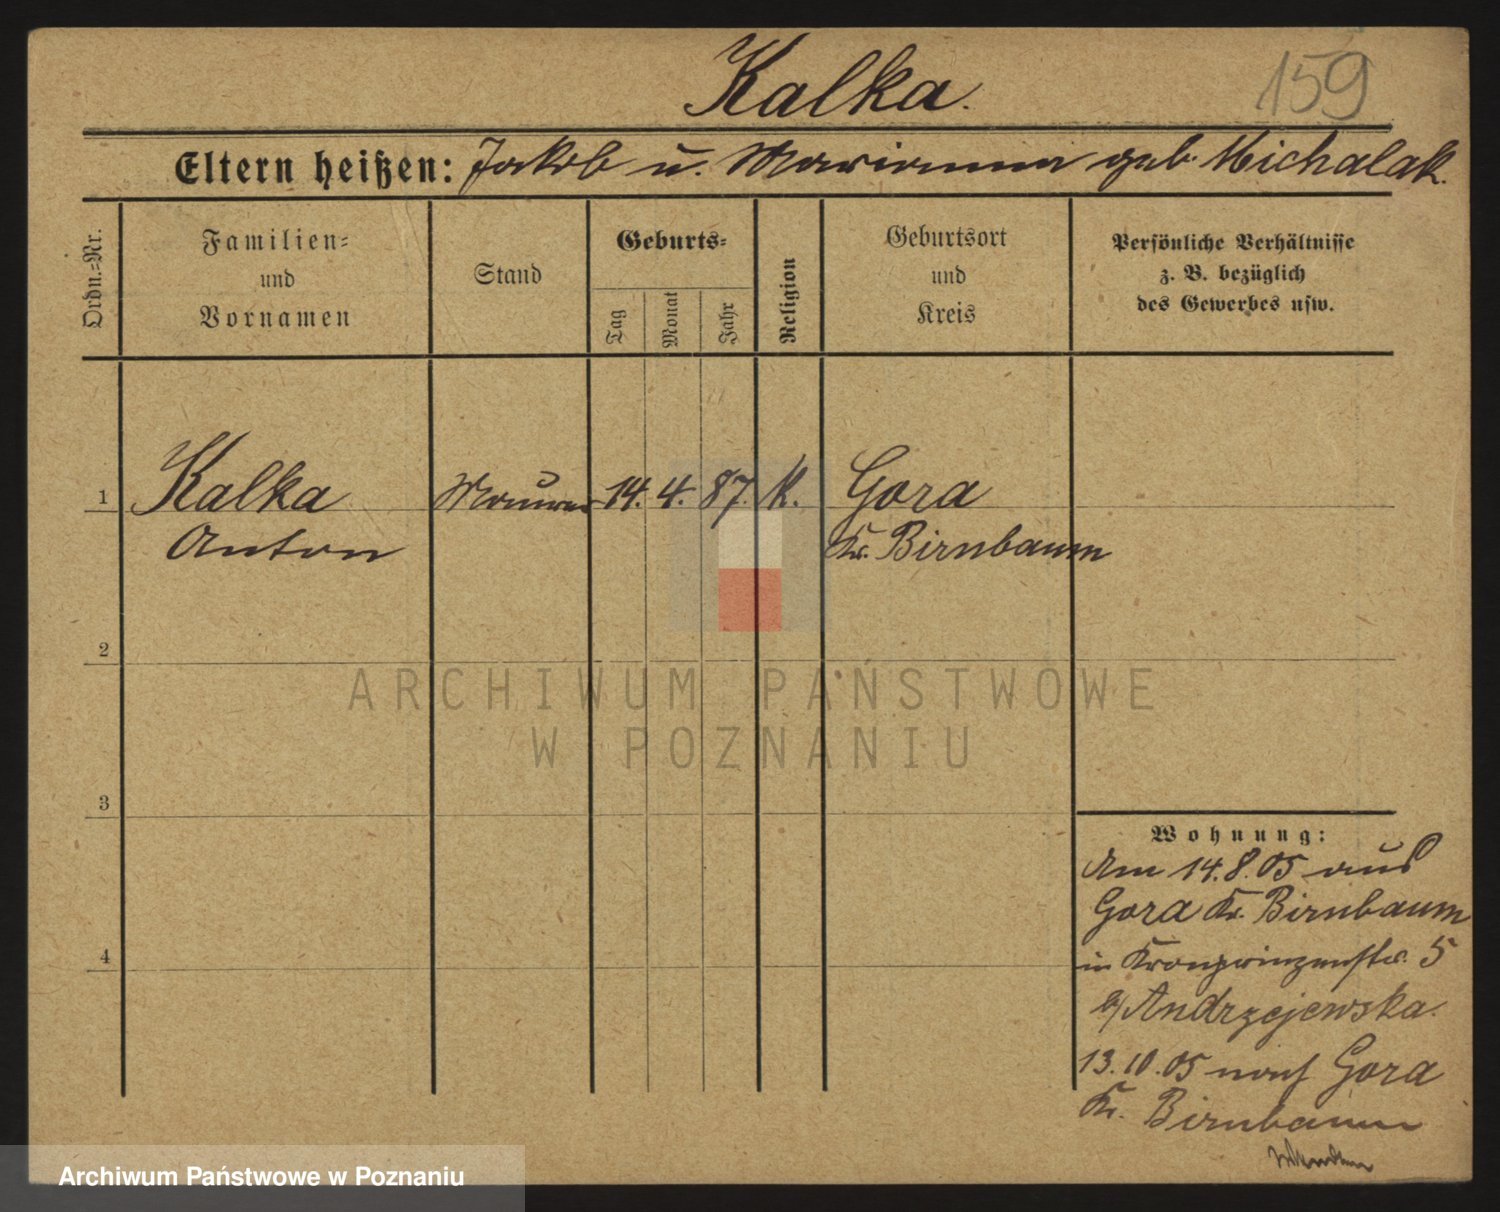 Kalka.
159
Eltern heißen: Jakob u. Marianna geb. Michalak.
Ordn.=Nr.
Familien=
und
Vornamen
Stand
Geburts=
Tag
Monat
Jahr
Religion
Geburtsort
und
Kreis
Persönliche Verhältnisse
z. B. bezüglich
des Gewerbes usw.
1 Kalka Maurer 14. 4. 87. K. Gora
Anton Kr. Birnbaum
2
3
4
Wohnung:
Am 14.8.05 aus
Gora Kr. Birnbaum
in Kronprinzenstr. 5
b/ Andrzejewska.
13.10.05 nach Gora
Kr. Birnbaum
ARCHIWUM PAŃSTWOWE
W POZNANIU
Archiwum Państwowe w Poznaniu